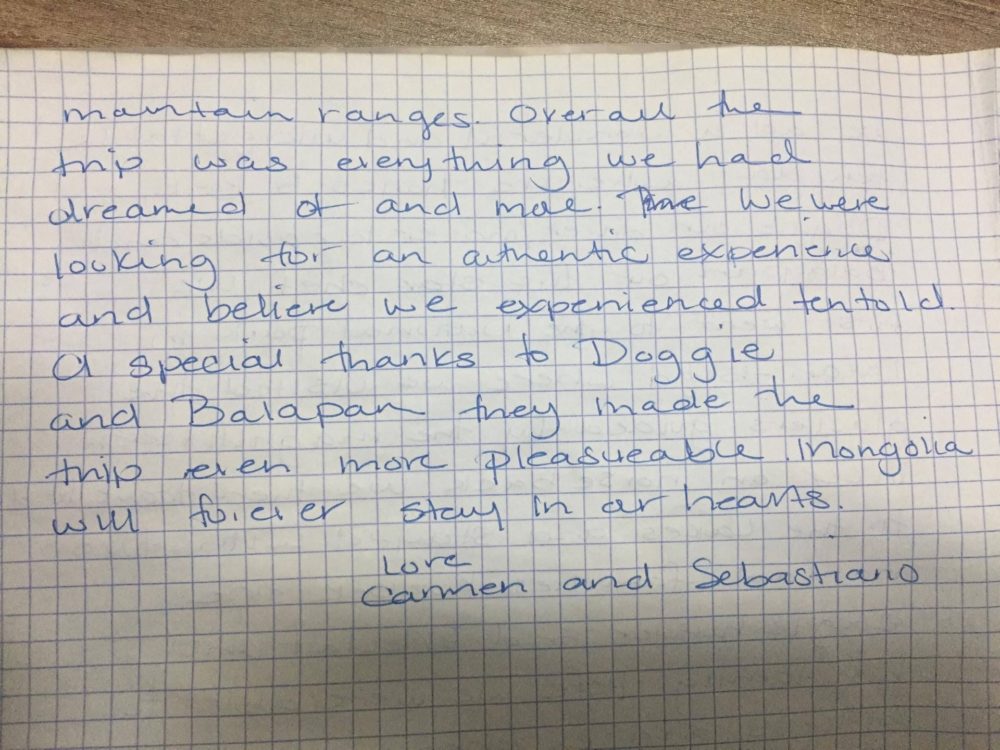 mountain ranges. Overall the
trip was everything we had
dreamed of and more. We were
looking for an authentic experience
and believe we experienced tenfold.
A special thanks to Doggie
and Balapan they made the
trip even more pleasueable. Mongolia
will forever stay in our hearts.
Love
Carmen and Sebastiano